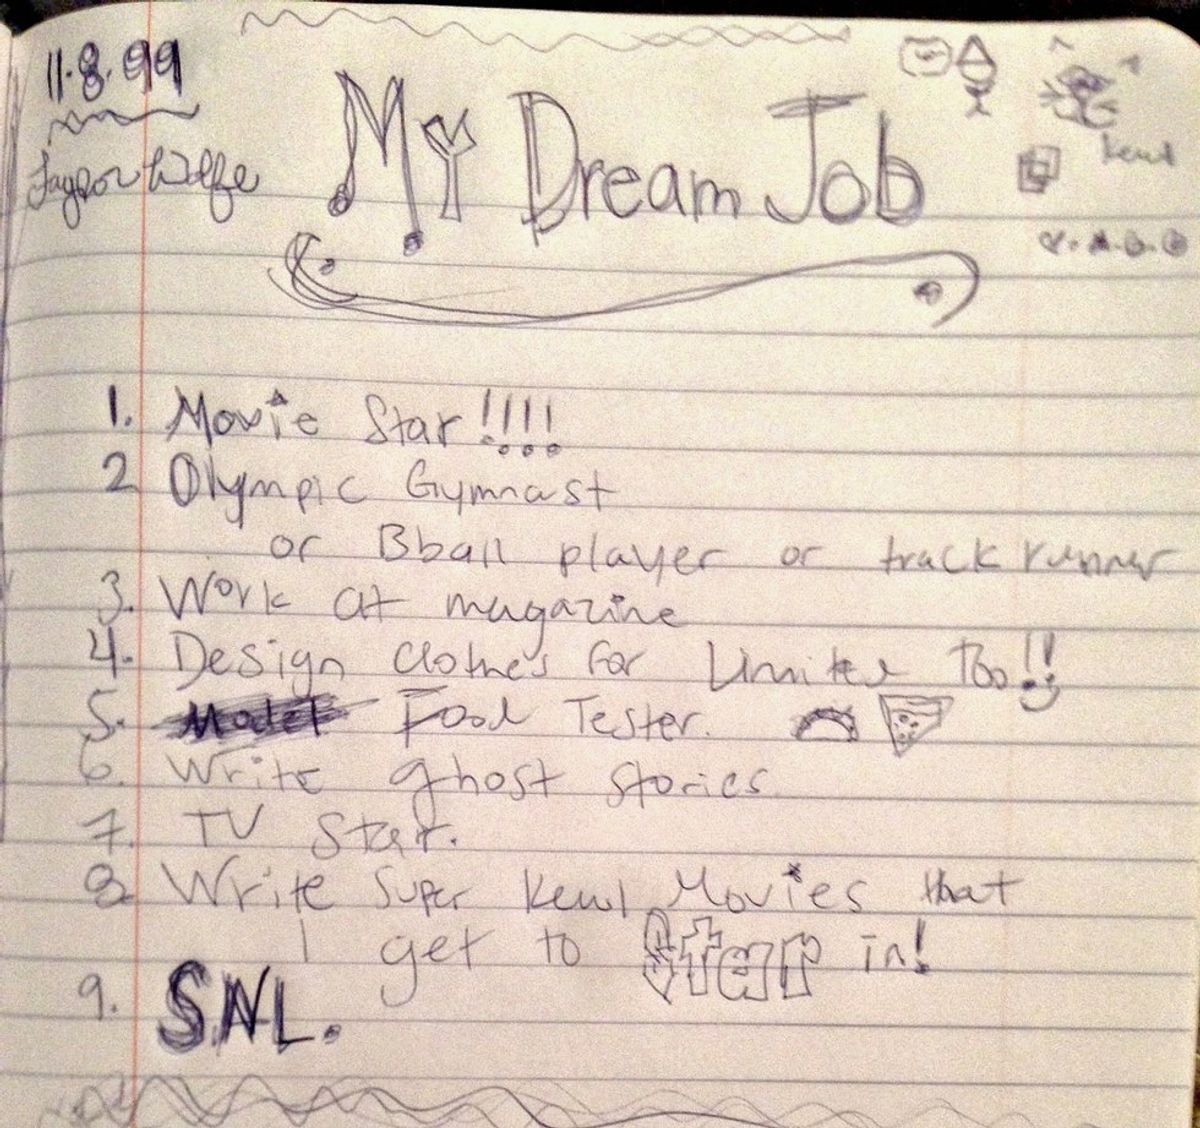 11.8.99
My Dream Job
Kewl
1. Movie Star!!!!
2 Olympic Gymnast
or Bball player or track runner
3. Work at magazine
4. Design clothes for Limited Too!!
5. Model Food Tester.
6. Write ghost stories.
7. TV Star.
8. Write Super Kewl Movies that
I get to Star in!
9. SNL.